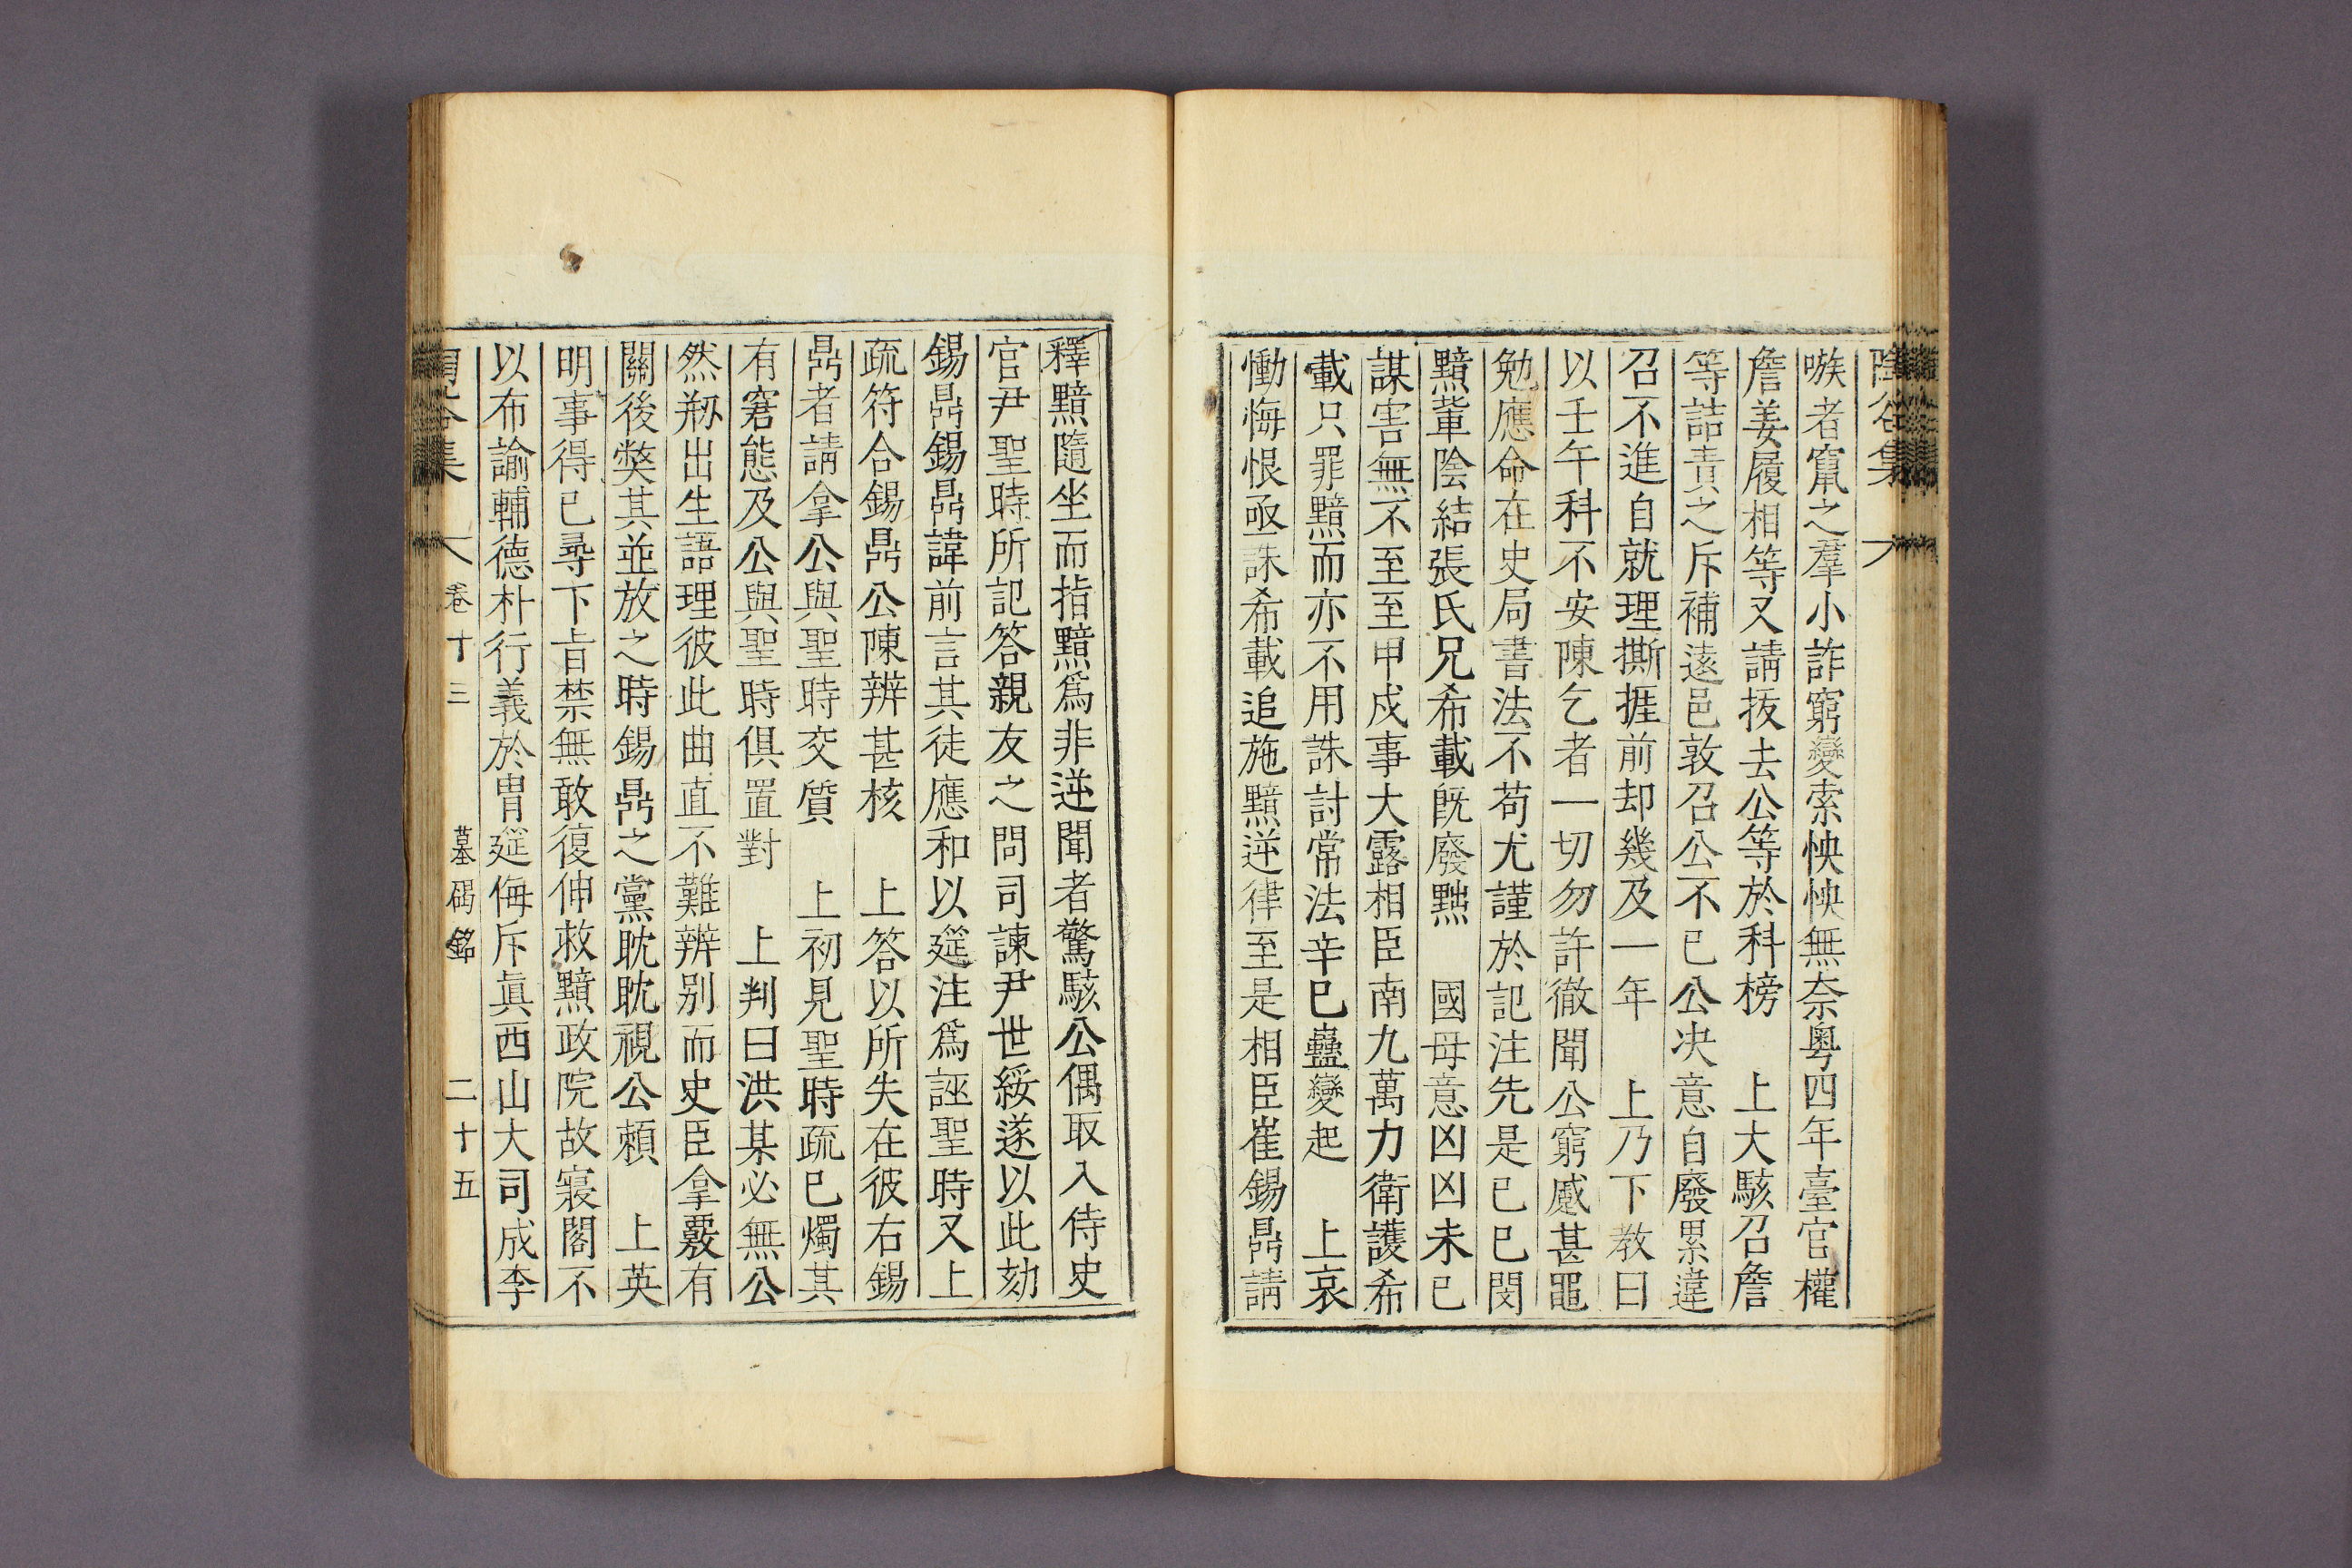 陶谷集
嗾者竄之羣小詐窮變索怏怏無奈粤四年臺官權
詹姜履相等又請拔去公等於科榜　上大駭召詹
等詰責之斥補遠邑敦召公不已公决意自廢累違
召不進自就理撕捱前却幾及一年　上乃下教曰
以壬午科不安陳乞者一切勿許徹聞公窮慼甚黽
勉應命在史局書法不苟尤謹於記注先是己巳閔
黯輩陰結張氏兄希載旣廢黜　國母意凶凶未已
謀害無不至至甲戌事大露相臣南九萬力衛護希
載只罪黯而亦不用誅討常法辛巳蠱變起　上哀
慟悔恨亟誅希載追施黯逆律至是相臣崔錫鼎請
釋黯隨坐而指黯爲非逆聞者驚駭公偶取入侍史
官尹聖時所記答親友之問司諫尹世綏遂以此劾
錫鼎錫鼎諱前言其徒應和以筵注爲誣聖時又上
疏符合錫鼎公陳辨甚核　上答以所失在彼右錫
鼎者請拿公與聖時交質　上初見聖時疏已燭其
有窘態及公與聖時俱置對　上判曰洪某必無公
然刱出生語理彼此曲直不難辨別而史臣拿覈有
關後弊其並放之時錫鼎之黨眈眈視公頼　上英
明事得已尋下旨禁無敢復伸救黯政院故寢閣不
以布諭輔德朴行義於冑筵侮斥眞西山大司成李
集　卷十三　墓碣銘　二十五